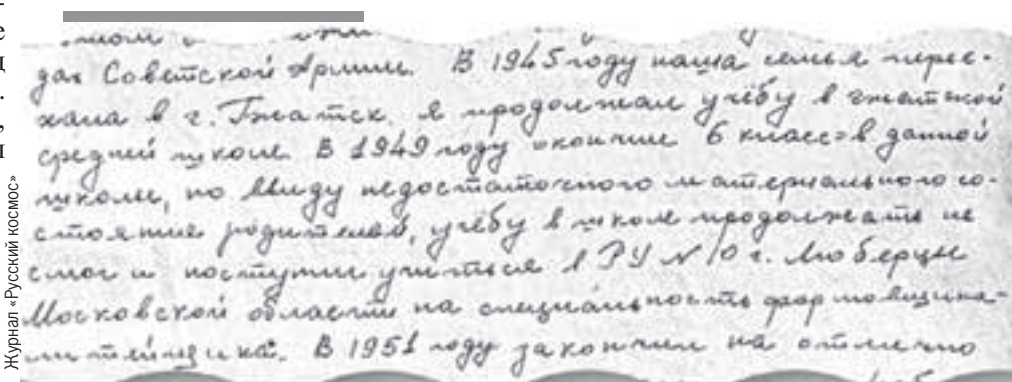 дах Советской Армии. В 1945 году наша семья перее-
хала в г. Гжатск. я продолжал учёбу в гжатской
средней школе. В 1949 году окончил 6 классов в данной
школе, но ввиду недостаточного материального со-
стояние родителей, учёбу в школе продолжать не
смог и поступил учиться в РУ № 10 г. Люберцы
Московской области на специальность формовщика-
литейщика. В 1951 году закончил на отлично
Журнал «Русский космос»